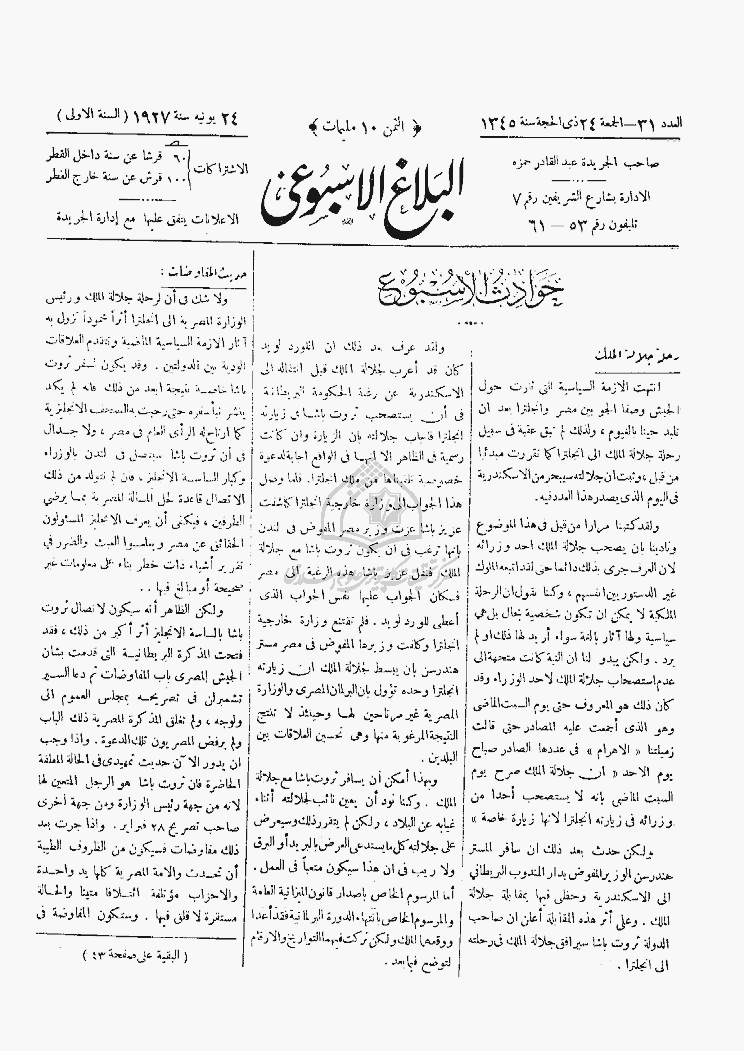 العدد ٣١ — الجمعة ٢٤ ذى الحجة سنة ١٣٤٥
﴿ الثمن ١٠ مليمات ﴾
٢٤ يونيه سنة ١٩٢٧ ( السنة الاولى )
صاحب الجريدة عبد القادر حمزه
الادارة بشارع الشريفين رقم ٧
تليفون رقم ٥٣ — ٦١
البلاغ الاسبوعى
الاشتراكات
٦٠ قرشا عن سنة داخل القطر
١٠٠ قرش عن سنة خارج القطر
الاعلانات يتفق عليها مع إدارة الجريدة
حوادث الأسبوع
رحلة جلالة الملك
انتهت الازمة السياسية التى ثارت حول
الجيش وصفا الجو بين مصر وانجلترا بعد ان
تلبد حينا بالغيوم ، ولذلك لم تبق عقبة فى سبيل
رحلة جلالة الملك الى انجلترا كما تقررت مبدئيا
من قبل ، وثبت ان جلالته سيبحر من الاسكندرية
فى اليوم الذى يصدر هذا العدد فيه .
ولقد كتبنا مرارا من قبل فى هذا الموضوع
ونادينا بان يصحب جلالة الملك احد وزرائه
لان العرف جرى بذلك دائما حتى لقد اتبعه الملوك
غير الدستوريين انفسهم ، وكنا نقول ان الرحلة
الملكية لا يمكن ان تكون شخصية بحال بل هى
سياسية ولها آثار بالغة سواء أريد لها ذلك او لم
يرد . ولكن يبدو لنا ان النية كانت متجهة الى
عدم استصحاب جلالة الملك لاحد الوزراء وقد
كان ذلك هو المعروف حتى يوم السبت الماضى
وهو الذى أجمعت عليه المصادر حتى قالت
زميلتنا « الاهرام » فى عددها الصادر صباح
يوم الاحد « ان جلالة الملك صرح يوم
السبت الماضى بانه لا يستصحب أحدا من
وزرائه فى زيارته انجلترا لانها زيارة خاصة »
ولكن حدث بعد ذلك ان سافر المستر
هندرسن الوزير المفوض بدار المندوب البريطانى
الى الاسكندرية وحظى فيها بمقابلة جلالة
الملك . وعلى أثر هذه المقابلة أعلن ان صاحب
الدولة ثروت باشا سيرافق جلالة الملك فى رحلته
الى انجلترا .
ولقد عرف بعد ذلك ان اللورد لويد
كان قد أعرب لجلالة الملك قبل انتقاله الى
الاسكندرية عن رغبة الحكومة البريطانية
فى أن يستصحب ثروت باشا فى زيارته
انجلترا فاجاب جلالته بان الزيارة وان كانت
رسمية فى الظاهر الا انها فى الواقع اجابة لدعوة
خصوصية تلقيناها من ملك انجلترا. فلما وصل
هذا الجواب الى وزارة خارجية انجلترا كاشفت
عزيز باشا عزت وزير مصر المفوض فى لندن
بانها ترغب فى ان يكون ثروت باشا مع جلالة
الملك فنقل عزيز باشا هذه الرغبة الى مصر
فكان الجواب عليها نفس الجواب الذى
أعطى للورد لويد . فلم تقتنع وزارة خارجية
انجلترا وكلفت وزيرها المفوض فى مصر مستر
هندرسن بان يبسط لجلالة الملك ان زيارته
انجلترا وحده تؤول بان البرلمان المصرى والوزارة
المصرية غير مرتاحين لها وحينئذ لا تنتج
النتيجة المرغوبة منها وهى تحسين العلاقات بين
البلدين .
وبهذا أمكن أن يسافر ثروت باشا مع جلالة
الملك . وكنا نود أن يعين نائب لجلالته أثناء
غيابه عن البلاد ، ولكن لم يتقرر ذلك وسيعرض
على جلالته كل ما يستدعى العرض بالبريد أو البرق
ولا ريب فى ان هذا سيكون متعبا فى العمل .
أما المرسوم الخاص باصدار قانون الميزانية العامة
والمرسوم الخاص بانتهاء الدورة البرلمانية فقد أعدا
ووقعهما الملك ولكن تركت فيهما التواريخ والارقام
لتوضع فيما بعد .
حديث المفاوضات :
ولا شك فى أن لرحلة جلالة الملك ورئيس
الوزارة المصرية الى انجلترا أثراً محموداً تزول به
آثار الازمة السياسية الماضية وتتقدم العلاقات
الودية بين الدولتين . وقد يكون لسفر ثروت
باشا خاصة نتيجة ابعد من ذلك فانه لم يكد
ينشر نبأ سفره حتى رحبت به الصحف الانجليزية
كما ارتاح له الرأى العام فى مصر ، ولا جدال
فى أن ثروت باشا سيتصل فى لندن بالوزراء
وكبار الساسة الانجليز ، فان لم تتولد من ذلك
الاتصال قاعدة لحل المسألة المصرية بما يرضى
الطرفين ، فيكفى أن يعرف الانجليز المسؤلون
الحقائق عن مصر ويعلموا العبث والضرر فى
تقرير أشياء ذات خطر بناء على معلومات غير
صحيحة أو مبالغ فيها . .
ولكن الظاهر أنه سيكون لاتصال ثروت
باشا بالساسة الانجليز أثر أكبر من ذلك ، فقد
فتحت المذكرة البريطانية التى قدمت بشان
الجيش المصرى باب المفاوضات ثم دعا السير
تشمبرلن فى تصريحه بمجلس العموم الى
ولوجه ، ولم تغلق المذكرة المصرية ذلك الباب
ولم يرفض المصريون تلك الدعوة . واذا وجب
ان يدور الآن حديث تمهيدى فى الحالة المعلقة
الحاضرة فان ثروت باشا هو الرجل المتعين لها
لانه من جهة رئيس الوزارة ومن جهة أخرى
صاحب تصريح ٢٨ فبراير . واذا جرت بعد
ذلك مفاوضات فسيكون من الظروف الطيبة
أن تحدث والامة المصرية كلها يد واحدة
والاحزاب مؤتلفة ائتلافا متينا والحالة
مستقرة لا قلق فيها . وستكون المفاوضة فى
( البقية على صفحة ٤٣ )